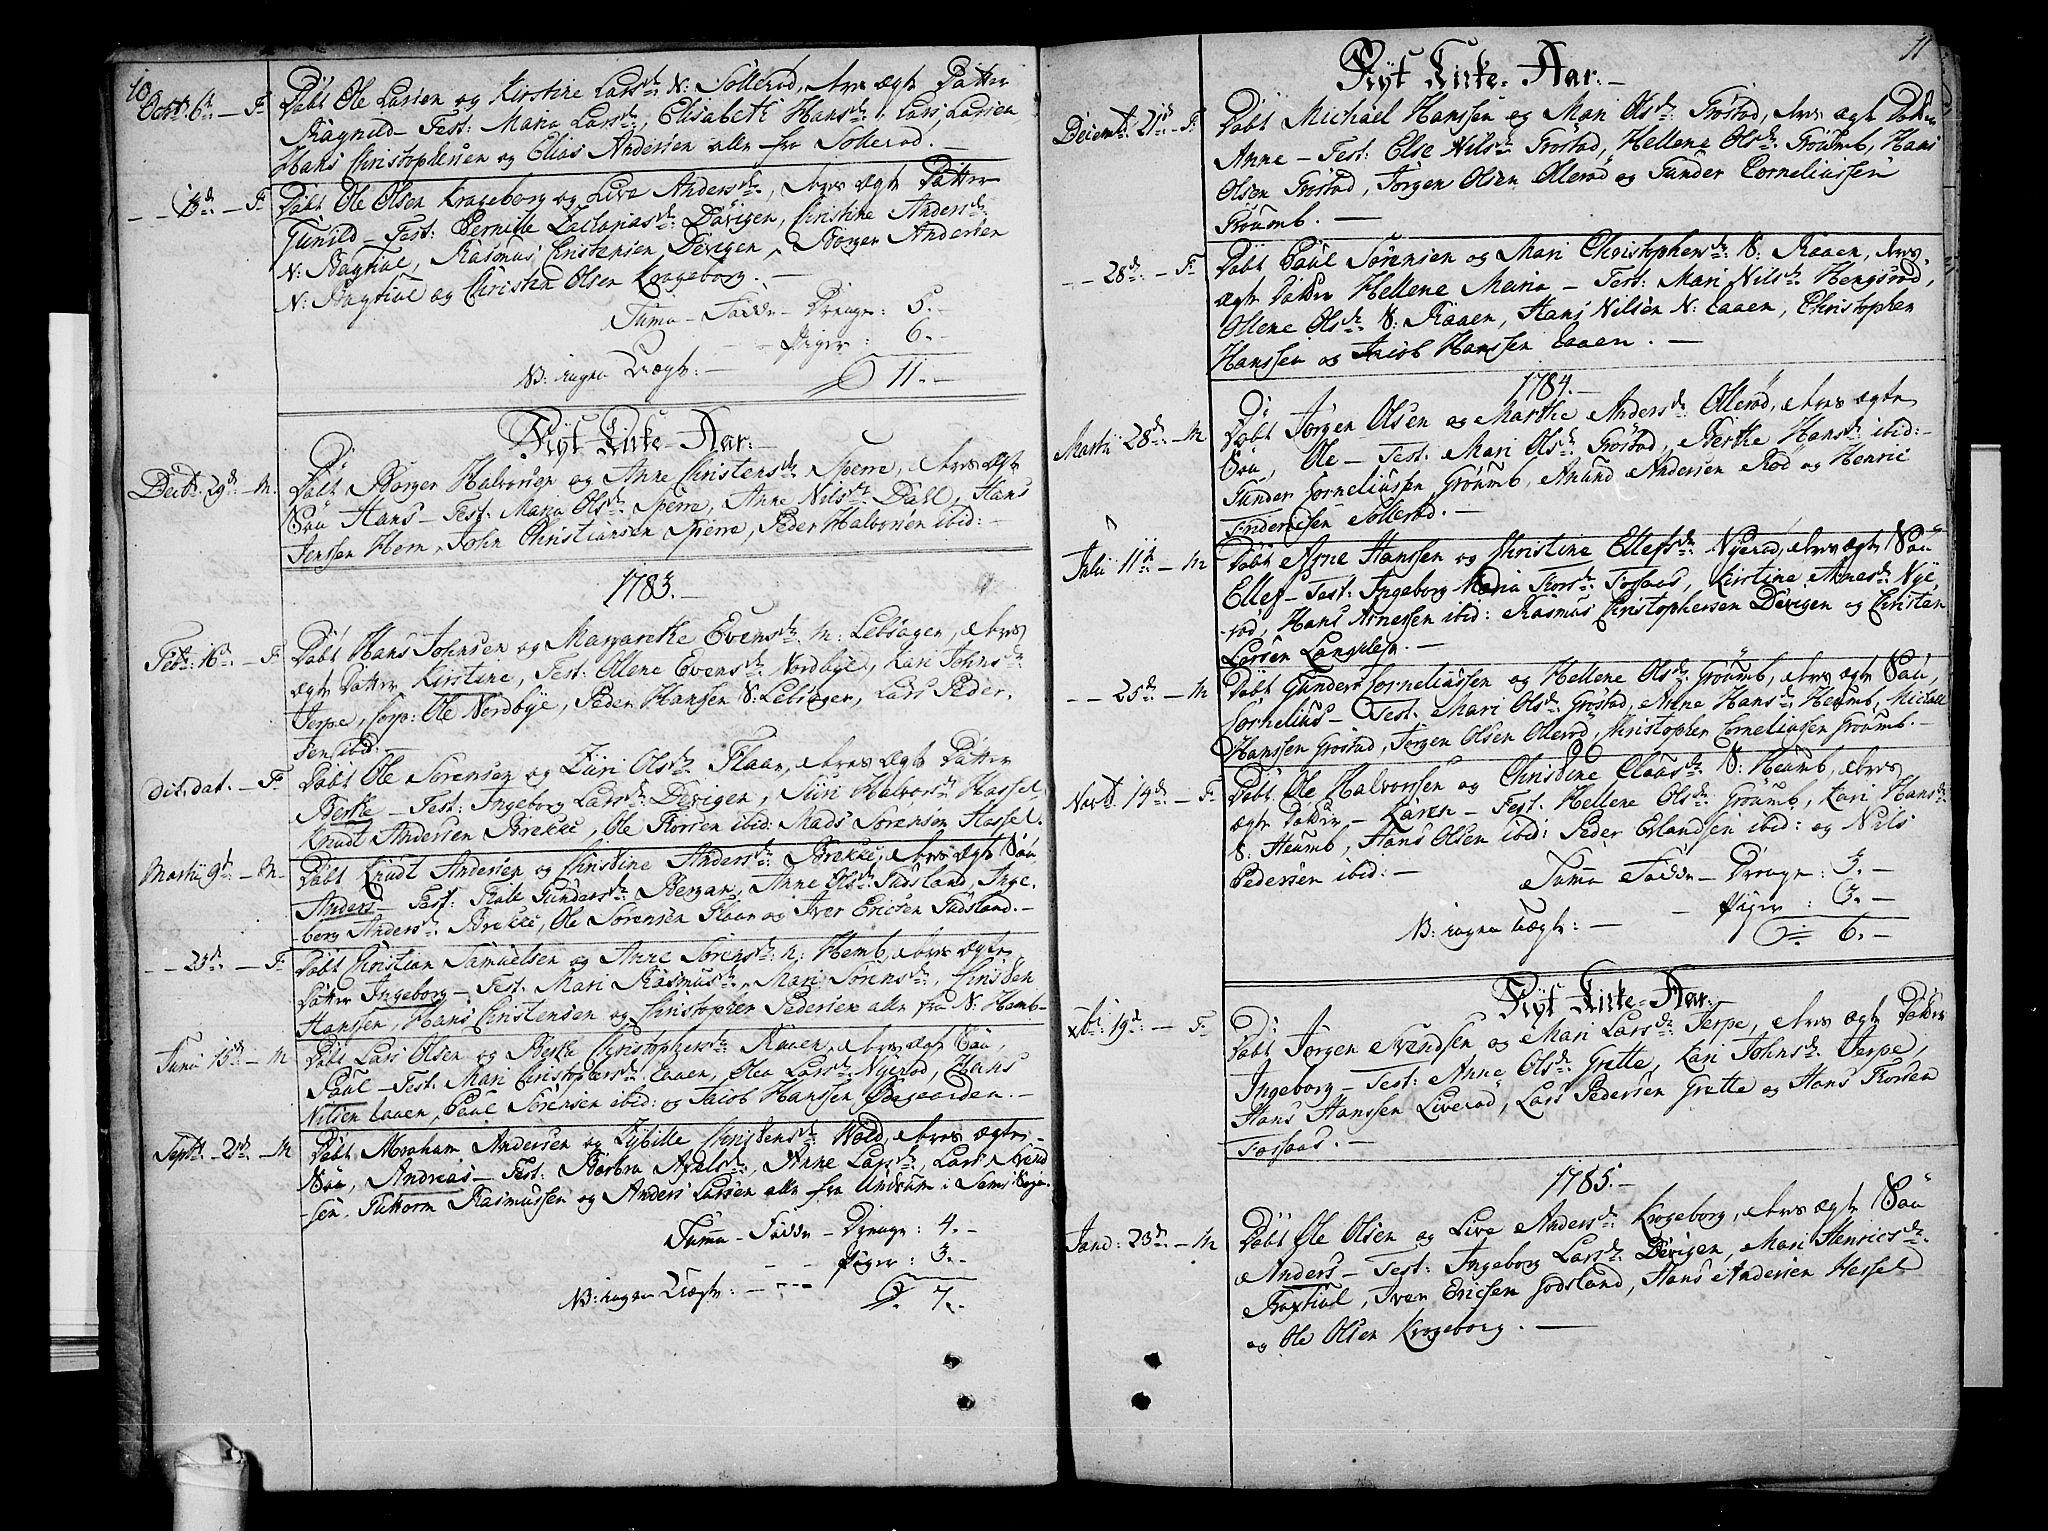 10
Octb: 6te – F. Døbt Ole Larsen og Kirstine Larsd: N: Sollerød, deres ægte Datter
Ragnild – Test: Maria Larsd:, Elisabeth Hansd:, Lars Larsen
Hans Christophersen og Elias Andersen alle fra Sollerød. –
– – 13de – F. Døbt Ole Olsen Krogeborg og Live Andersd:, deres ægte Datter
Gunild – Test: Pernille Zacharias d: Døvigen, Christine Andersd:
N: Bagtiul, Rasmus Christensen Døvigen, Børger Andersen
N: Bagtiul og Christen Olsen Krogeborg. –
Suma – Fødde – Drenge: 5. –
– – Piger: 6. –
NB: ingen Uægte: – 11. –
Nyt Kirke-Aar: –
Decbr: 29de – M. Døbt Børger Halvorsen og Anne Christensd: Sperre, deres ægte
Søn Hans – Test: Maria Olsd: Sperre, Anne Nilsd: Dahl, Hans
Jenssen Hem, John Christiansen Sperre, Peder Halvorsen ibid: –
1783. –
Feb: 16de – F. Døbt Hans Johnsen og Margarethe Evensd: M: Lebsagen, deres
ægte Datter Kirstine, Test: Ollene Evensd: Nordbye, Kari Johnsd:
Jerpe, Corp: Ole Nordbye, Peder Hansen N: Lebsagen, Lars Peder-
sen ibid: –
dit. dat. – F. Døbt Ole Sørensen og Siri Olsd: Flaan, deres ægte Datter
Berthe – Test: Ingeborg Larsd: Døvigen, Siiri Halvorsd: Hassel
Knudt Andersen Brekke, Ole Thorsen ibid: Mads Sørensen Hassel.
Martii 9de – M. Døbt Knudt Andersen og Christine Andersd: Brekke, deres ægte Søn
Anders – Test: Gundersd: Bergan, Anne Olsd: Gudsland, Inge-
borg Andersd: Brekke, Ole Sørensen Flaan og Iver Ericsen Gudsland. –
– – 23de – F. Døbt Christian Samuelsen og Anne Sørensd: N: Hemb, deres ægte
Datter Ingeborg – Test: Mari Rasmusd:, Mari Sørensd:, Christen
Hanssen, Hans Christensen og Christopher Pedersen alle fra N: Hemb –
Juni 15de – M. Døbt Lars Olsen og Berthe Christophersd: Raaen, deres ægte Søn,
Paul – Test: Mari Christophersd: Raaen, Olea Larsd: Nyerød, Hans
Nilsen Raaen, Paul Sørensen ibid: og Jacob Hanssen –
Septb: – 21de – M. Døbt Abraham Andersen og Sybille Christensd: Wold, deres ægte
Søn, Andreas – Test: Barbra Axelsd:, Anne Larsd:, Lars Svend-
sen, Guttorm Rasmussen og Anders Larsen alle fra Undrum i Sems Sogn.
Suma – Fødde – Drenge: 4. –
– – Piger: 3. –
NB: ingen Uægte: – – – 7. –
11
Nyt Kirke-Aar: –
Decemb: 21de – F. Døbt Michael Hanssen og Mari Olsd: Grøstad, deres ægte Datter
Anne – Test: Else Nilsd: Grøstad, Hellene Olsd: Grøumb, Hans
Olsen Grøstad, Jørgen Olsen Ollerød og Gunder Corneliussen
Grøumb. –
– – 28de – F. Døbt Paul Sørensen og Mari Christophersd: N: Raaen, deres
ægte Datter Hellene Maria – Test: Mari Nilsd: Hengsrød,
Ollene Olsd: N: Raaen, Hans Nilsen N: Raaen, Christopher
Hanssen og Jacob Hanssen Raaen. –
1784. –
Martii 28de – M Døbt Jørgen Olsen og Marthe Andersd: Ollerød, deres ægte
Søn, Ole – Test: Mari Olsd: Grøstad, Berthe Hansd: ibid: –
Gunder Corneliussen Grøumb, Amund Andersen Rød og Henric
Sollerød. –
Julii 11te – M Døbt Arne Hanssen og Christine Ellefsd: Nyerød, deres ægte Søn
Ellef – Test: Ingeborg Maria Thorsd: Fossaas, Kirstine Arnesd: Nye-
rød, Hans Arnessen ibid: Rasmus Christophersen Døvigen og Christen
Larsen Langelejn. –
– – 25de – M Døbt Gunder Corneliussen og Hellene Olsd: Grøumb, deres ægte Søn,
Cornelius – Test: Mari Olsd: Grøstad, Anne Hansd: Heumb, Michael
Hanssen Grøstad, Jørgen Olsen Ollerød, Christopher Corneliussen Grøumb. –
Novb: 14de – F. Døbt Ole Halvorssen og Christine Clausd: N: Heumb, deres
ægte Datter – Karen – Test: Hellene Olsd: Grøumb, Kari Hansd:
N: Heumb, Hans Olsen ibid: Peder Erlandsen ibid: og Nils
Pedersen ibid: –
Suma Fødde – Drenge: 3. –
– Piger: 3. –
NB: ingen Uægte: – 6. –
Nyt Kirke-Aar:
xbr: 19de – F. Døbt Jørgen Svendsen og Mari Larsd: Jerpe, deres ægte Datter
Ingeborg – Test: Anne Olsd: Grette, Kari Johnsd: Jerpe,
Hans Hanssen Liverød, Lars Pedersen Grette og Hans Thorsen
Fossaas. –
1785. –
Janv: 23de – M Døbt Ole Olsen og Live Andersd: Krogeborg, deres ægte Søn
Anders – Test: Ingeborg Larsd: Døvigen, Mari Henricsd:
Bagtiul, Iver Ericsen Godsland, Hans Andersen Hessel
og Ole Olsen Krogeborg. –